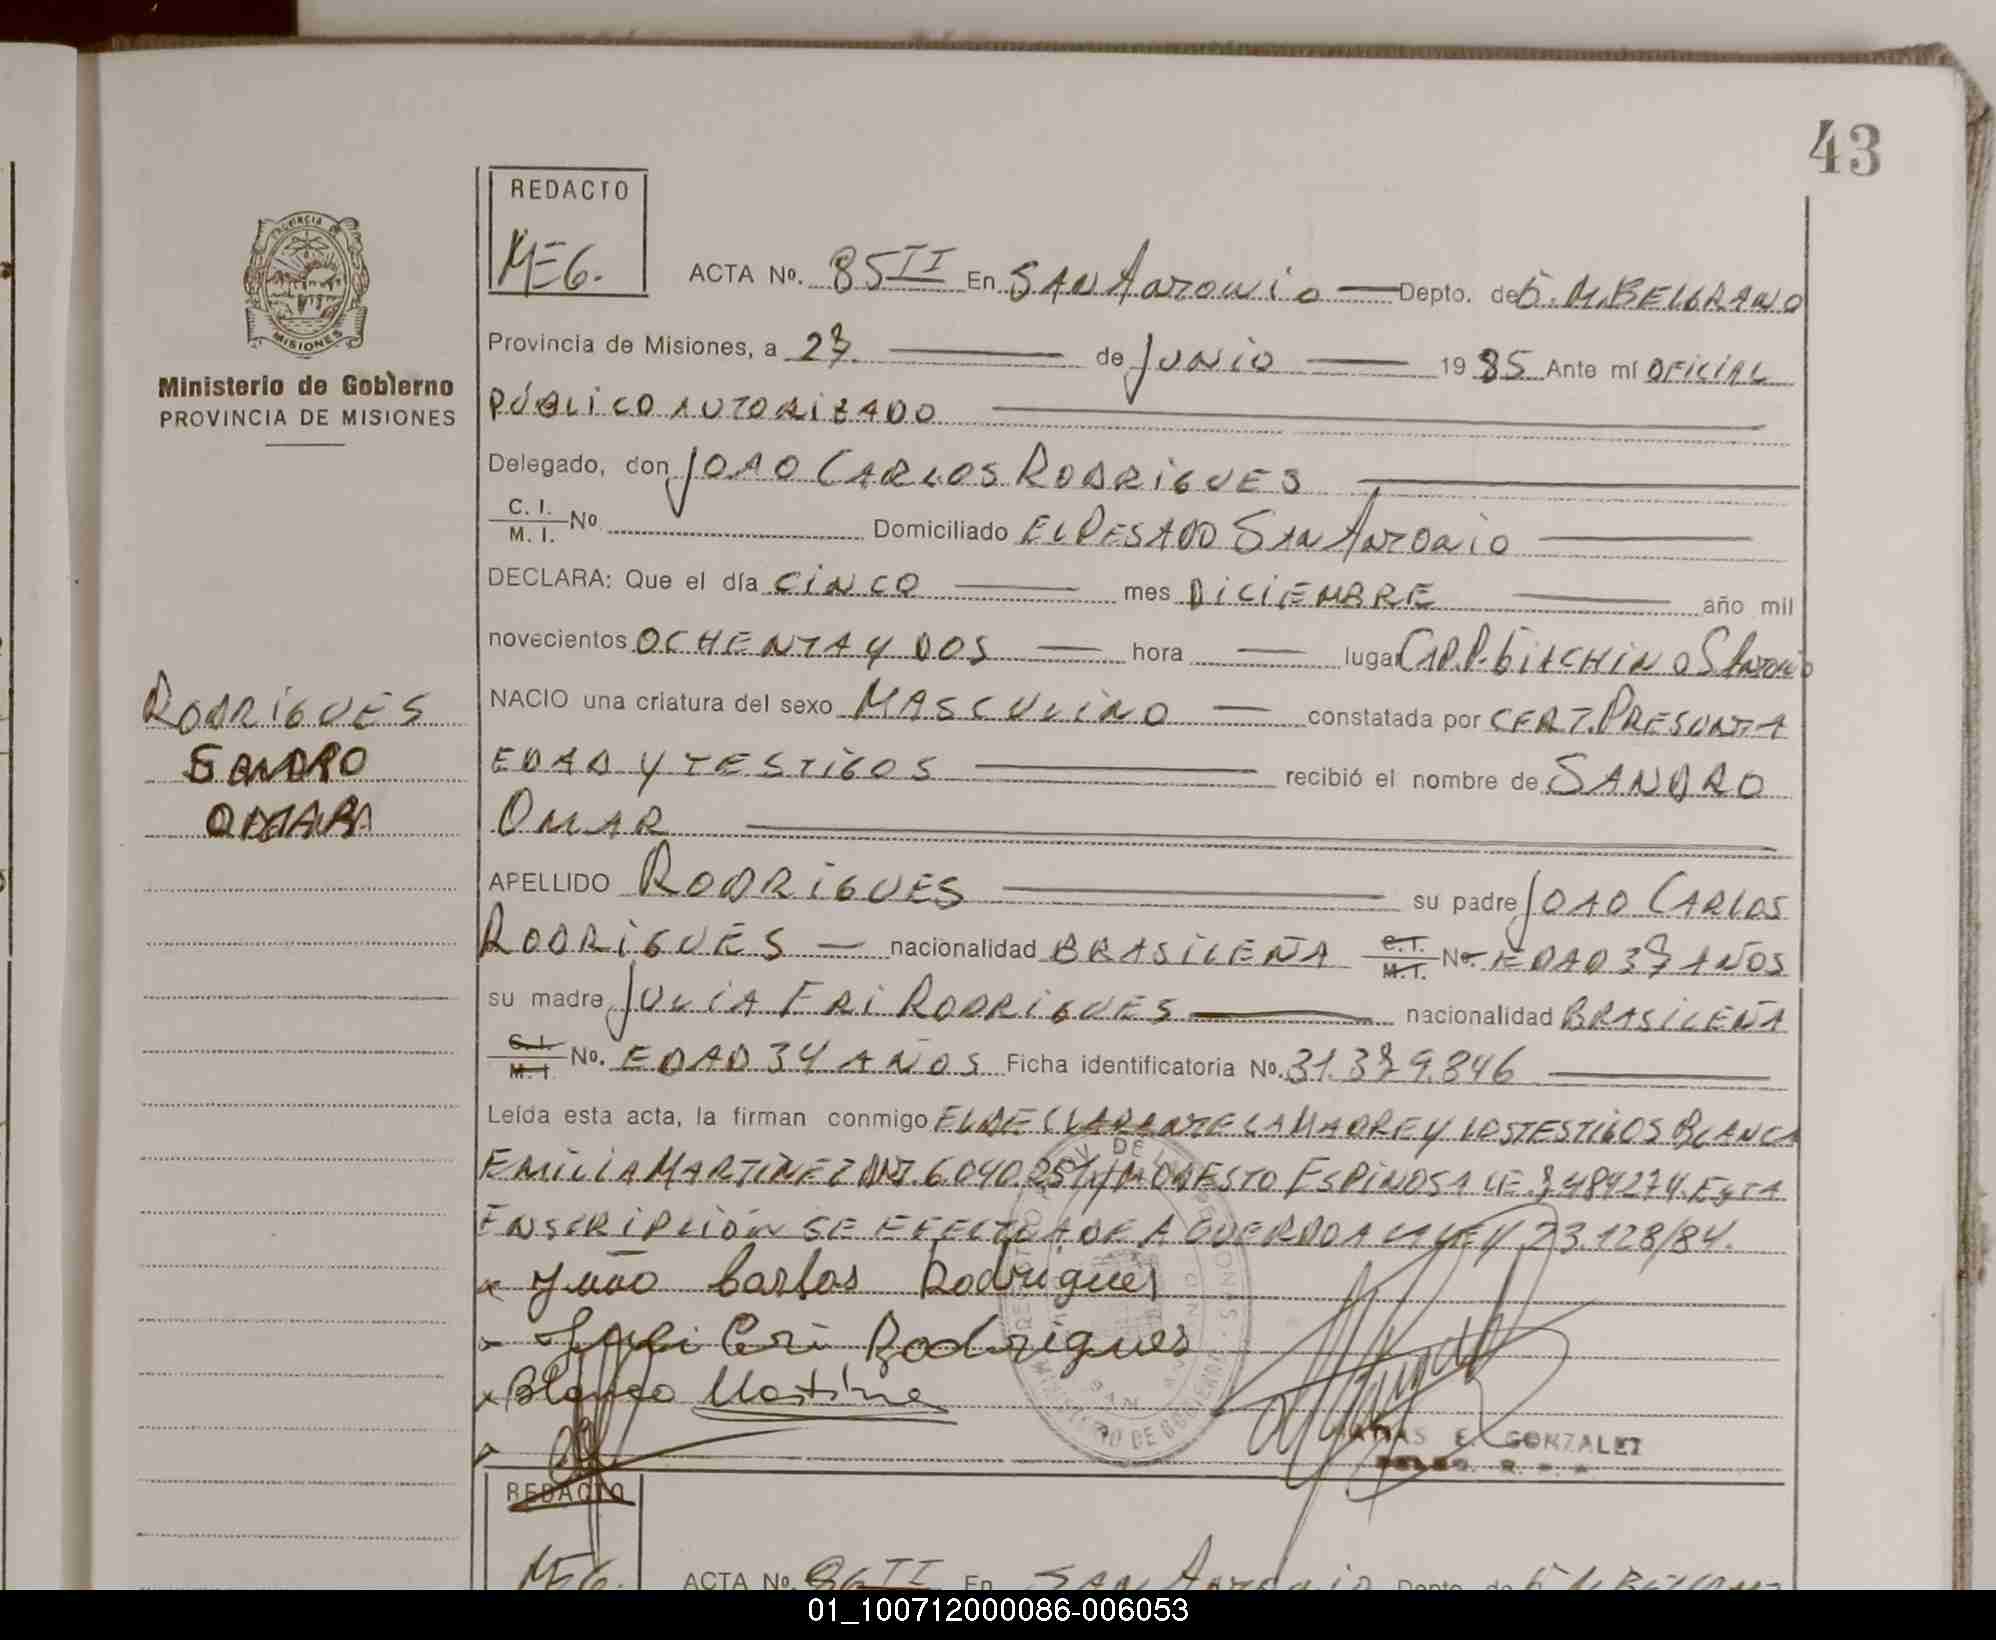 43
REDACTO
MEG.
ACTA Nº. 85 II En SAN ANTONIO Depto. de G. M. BELGRANO
Provincia de Misiones, a 27 de JUNIO 1985 Ante mí OFICIAL
PÚBLICO AUTORIZADO
Delegado, don JOAO CARLOS RODRIGUES
C. I. M. I. Nº Domiciliado EL PESADO SAN ANTONIO
DECLARA: Que el día CINCO mes DICIEMBRE año mil
novecientos OCHENTA Y DOS hora lugar S ANTONIO
NACIO una criatura del sexo MASCULINO constatada por CERT. PRESUNTA
EDAD Y TESTIGOS recibió el nombre de SANDRO
OMAR
APELLIDO RODRIGUES su padre JOAO CARLOS
RODRIGUES nacionalidad BRASILEÑA C.I. M.I. Nº EDAD 37 AÑOS
su madre JULIA ERI RODRIGUES nacionalidad BRASILEÑA
C.I. M.I. No. EDAD 34 AÑOS Ficha identificatoria No. 31.379.846
Leída esta acta, la firman conmigo EL DECLARANTE LA MADRE Y LOS TESTIGOS BLANCA
EMILIA MARTINEZ DNI. 6.040.251 Y MODESTO ESPINOSA LE 7484274. ESTA
ENSCRIPCIÓN SE EFECTUA DE A GUERDO A LA LEY 23.128/84.
João Carlos Rodrigues
Eri Rodrigues
Blanca Martine
MATIAS E. GONZALEZ
PROVINCIA DE MISIONES
Ministerio de Gobierno
PROVINCIA DE MISIONES
RODRIGUES
SANDRO
MINISTERIO DE GOBIERNO
REDACTO
MEG.
ACTA No. 86 II En SAN ANTONIO Depto. de G. M. BELGRANO
01_100712000086-006053